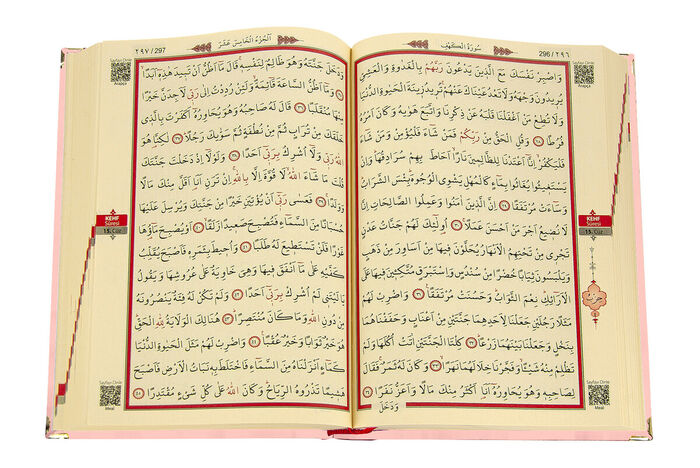 سُورَةُ الْكَهْفِ
296 / ٢٩٦
Sayfayı Dinle
Arapça
وَاصْبِرْ نَفْسَكَ مَعَ الَّذ۪ينَ يَدْعُونَ رَبَّهُمْ بِالْغَدٰوةِ وَالْعَشِيِّ
يُر۪يدُونَ وَجْهَهُ وَلَا تَعْدُ عَيْنَاكَ عَنْهُمْ تُر۪يدُ ز۪ينَةَ الْحَيٰوةِ الدُّنْيَا
وَلَا تُطِعْ مَنْ اَغْفَلْنَا قَلْبَهُ عَنْ ذِكْرِنَا وَاتَّبَعَ هَوٰيهُ وَكَانَ اَمْرُهُ
فُرُطًا ﴿٢٨﴾ وَقُلِ الْحَقُّ مِنْ رَبِّكُمْ فَمَنْ شَٓاءَ فَلْيُؤْمِنْ وَمَنْ شَٓاءَ
فَلْيَكْفُرْ اِنَّٓا اَعْتَدْنَا لِلظَّالِم۪ينَ نَارًا اَحَاطَ بِهِمْ سُرَادِقُهَا وَاِنْ
يَسْتَغ۪يثُوا يُغَاثُوا بِمَٓاءٍ كَالْمُهْلِ يَشْوِي الْوُجُوهَ بِئْسَ الشَّرَابُ
وَسَٓاءَتْ مُرْتَفَقًا ﴿٢٩﴾ اِنَّ الَّذ۪ينَ اٰمَنُوا وَعَمِلُوا الصَّالِحَاتِ اِنَّا
لَا نُض۪يعُ اَجْرَ مَنْ اَحْسَنَ عَمَلًا ﴿٣٠﴾ اُو۬لٰٓئِكَ لَهُمْ جَنَّاتُ عَدْنٍ
تَجْر۪ي مِنْ تَحْتِهِمُ الْاَنْهَارُ يُحَلَّوْنَ ف۪يهَا مِنْ اَسَاوِرَ مِنْ ذَهَبٍ
وَيَلْبَسُونَ ثِيَابًا خُضْرًا مِنْ سُنْدُسٍ وَاِسْتَبْرَقٍ مُتَّكِـ۪ٔينَ ف۪يهَا عَلَى
الْاَرَٓائِكِ نِعْمَ الثَّوَابُ وَحَسُنَتْ مُرْتَفَقًا ﴿٣١﴾ وَاضْرِبْ لَهُمْ
مَثَلًا رَجُلَيْنِ جَعَلْنَا لِاَحَدِهِمَا جَنَّتَيْنِ مِنْ اَعْنَابٍ وَحَفَفْنَاهُمَا
بِنَخْلٍ وَجَعَلْنَا بَيْنَهُمَا زَرْعًا ﴿٣٢﴾ كِلْتَا الْجَنَّتَيْنِ اٰتَتْ اُكُلَهَا وَلَمْ
تَظْلِمْ مِنْهُ شَيْـًٔا وَفَجَّرْنَا خِلَالَهُمَا نَهَرًا ﴿٣٣﴾ وَكَانَ لَهُ ثَمَرٌ فَقَالَ
لِصَاحِبِه۪ وَهُوَ يُحَاوِرُهُٓ اَنَا۬ اَكْثَرُ مِنْكَ مَالًا وَاَعَزُّ نَفَرًا ﴿٣٤﴾
وَدَخَلَ
KEHF
Sûresi
15. Cüz
حِزْبٌ
Sayfayı Dinle
Meal
297 / ٢٩٧
اَلْجُزْءُ الْخَامِسَ عَشَرَ
Sayfayı Dinle
Arapça
وَدَخَلَ جَنَّتَهُ وَهُوَ ظَالِمٌ لِنَفْسِه۪ قَالَ مَٓا اَظُنُّ اَنْ تَب۪يدَ هٰذِه۪ٓ اَبَدًا
﴿٣٥﴾ وَمَٓا اَظُنُّ السَّاعَةَ قَٓائِمَةً وَلَئِنْ رُدِدْتُ اِلٰى رَبّ۪ي لَاَجِدَنَّ خَيْرًا
مِنْهَا مُنْقَلَبًا ﴿٣٦﴾ قَالَ لَهُ صَاحِبُهُ وَهُوَ يُحَاوِرُهُٓ اَكَفَرْتَ بِالَّذ۪ي
خَلَقَكَ مِنْ تُرَابٍ ثُمَّ مِنْ نُطْفَةٍ ثُمَّ سَوّٰيكَ رَجُلًا ﴿٣٧﴾ لٰكِنَّا۬ هُوَ
اللّٰهُ رَبّ۪ي وَلَٓا اُشْرِكُ بِرَبّ۪ٓي اَحَدًا ﴿٣٨﴾ وَلَوْلَٓا اِذْ دَخَلْتَ جَنَّتَكَ
قُلْتَ مَا شَٓاءَ اللّٰهُ لَا قُوَّةَ اِلَّا بِاللّٰهِ اِنْ تَرَنِ اَنَا۬ اَقَلَّ مِنْكَ مَالًا
وَوَلَدًا ﴿٣٩﴾ فَعَسٰى رَبّ۪ٓي اَنْ يُؤْتِيَنِ خَيْرًا مِنْ جَنَّتِكَ وَيُرْسِلَ عَلَيْهَا
حُسْبَانًا مِنَ السَّمَٓاءِ فَتُصْبِحَ صَع۪يدًا زَلَقًا ﴿٤٠﴾ اَوْ يُصْبِحَ مَٓاؤُ۬هَا
غَوْرًا فَلَنْ تَسْتَط۪يعَ لَهُ طَلَبًا ﴿٤١﴾ وَاُح۪يطَ بِثَمَرِه۪ فَاَصْبَحَ يُقَلِّبُ
كَفَّيْهِ عَلٰى مَٓا اَنْفَقَ ف۪يهَا وَهِيَ خَاوِيَةٌ عَلٰى عُرُوشِهَا وَيَقُولُ
يَا لَيْتَن۪ي لَمْ اُشْرِكْ بِرَبّ۪ٓي اَحَدًا ﴿٤٢﴾ وَلَمْ تَكُنْ لَهُ فِئَةٌ يَنْصُرُونَهُ
مِنْ دُونِ اللّٰهِ وَمَا كَانَ مُنْتَصِرًا ﴿٤٣﴾ هُنَالِكَ الْوَلَايَةُ لِلّٰهِ الْحَقِّ
هُوَ خَيْرٌ ثَوَابًا وَخَيْرٌ عُقْبًا ﴿٤٤﴾ وَاضْرِبْ لَهُمْ مَثَلَ الْحَيٰوةِ الدُّنْيَا
كَمَٓاءٍ اَنْزَلْنَاهُ مِنَ السَّمَٓاءِ فَاخْتَلَطَ بِه۪ نَبَاتُ الْاَرْضِ فَاَصْبَحَ
هَش۪يمًا تَذْرُوهُ الرِّيَاحُ وَكَانَ اللّٰهُ عَلٰى كُلِّ شَيْءٍ مُقْتَدِرًا ﴿٤٥﴾
KEHF
Sûresi
15. Cüz
Sayfayı Dinle
Meal